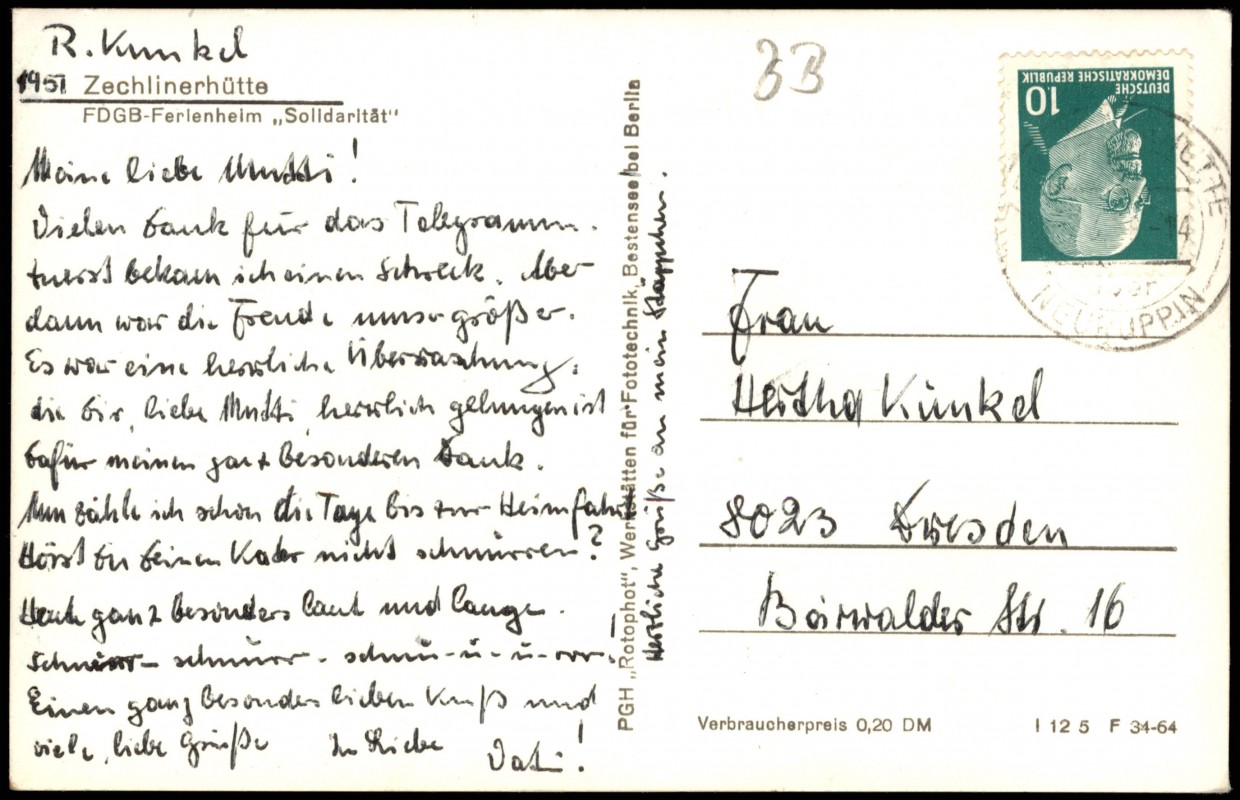 R. Kunkel
1951 Zechlinerhütte
FDGB-Ferienheim „Solidarität"
Meine liebe Mutti!
Vielen Dank für das Telegramm.
Zuerst bekam ich einen Schreck. Aber
dann war die Freude umso größer.
Es war eine herrliche Überraschung,
die Dir, liebe Mutti, herrlich gelungen ist
Dafür meinen ganz besonderen Dank.
Nun zähle ich schon die Tage bis zur Heimfahrt
Hörst Du Deinen Kater nicht schnurren?
Heute ganz besonders laut und lange.
Schnurr - schnurr - schnu-u-u-rrr!
Einen ganz besonders lieben Kuß und
viele, liebe Grüße In Liebe Vati!
PGH „Rotophot", Werkstätten für Fototechnik, Bestensee bei Berlin
Herzliche Grüße an mein
33
DEUTSCHE
DEMOKRATISCHE REPUBLIK
10
NEURUPPIN
-14
Frau
Hertha Kunkel
8023 Dresden
Bärwalder Str. 16
Verbraucherpreis 0,20 DM
I 12 5 F 34-64